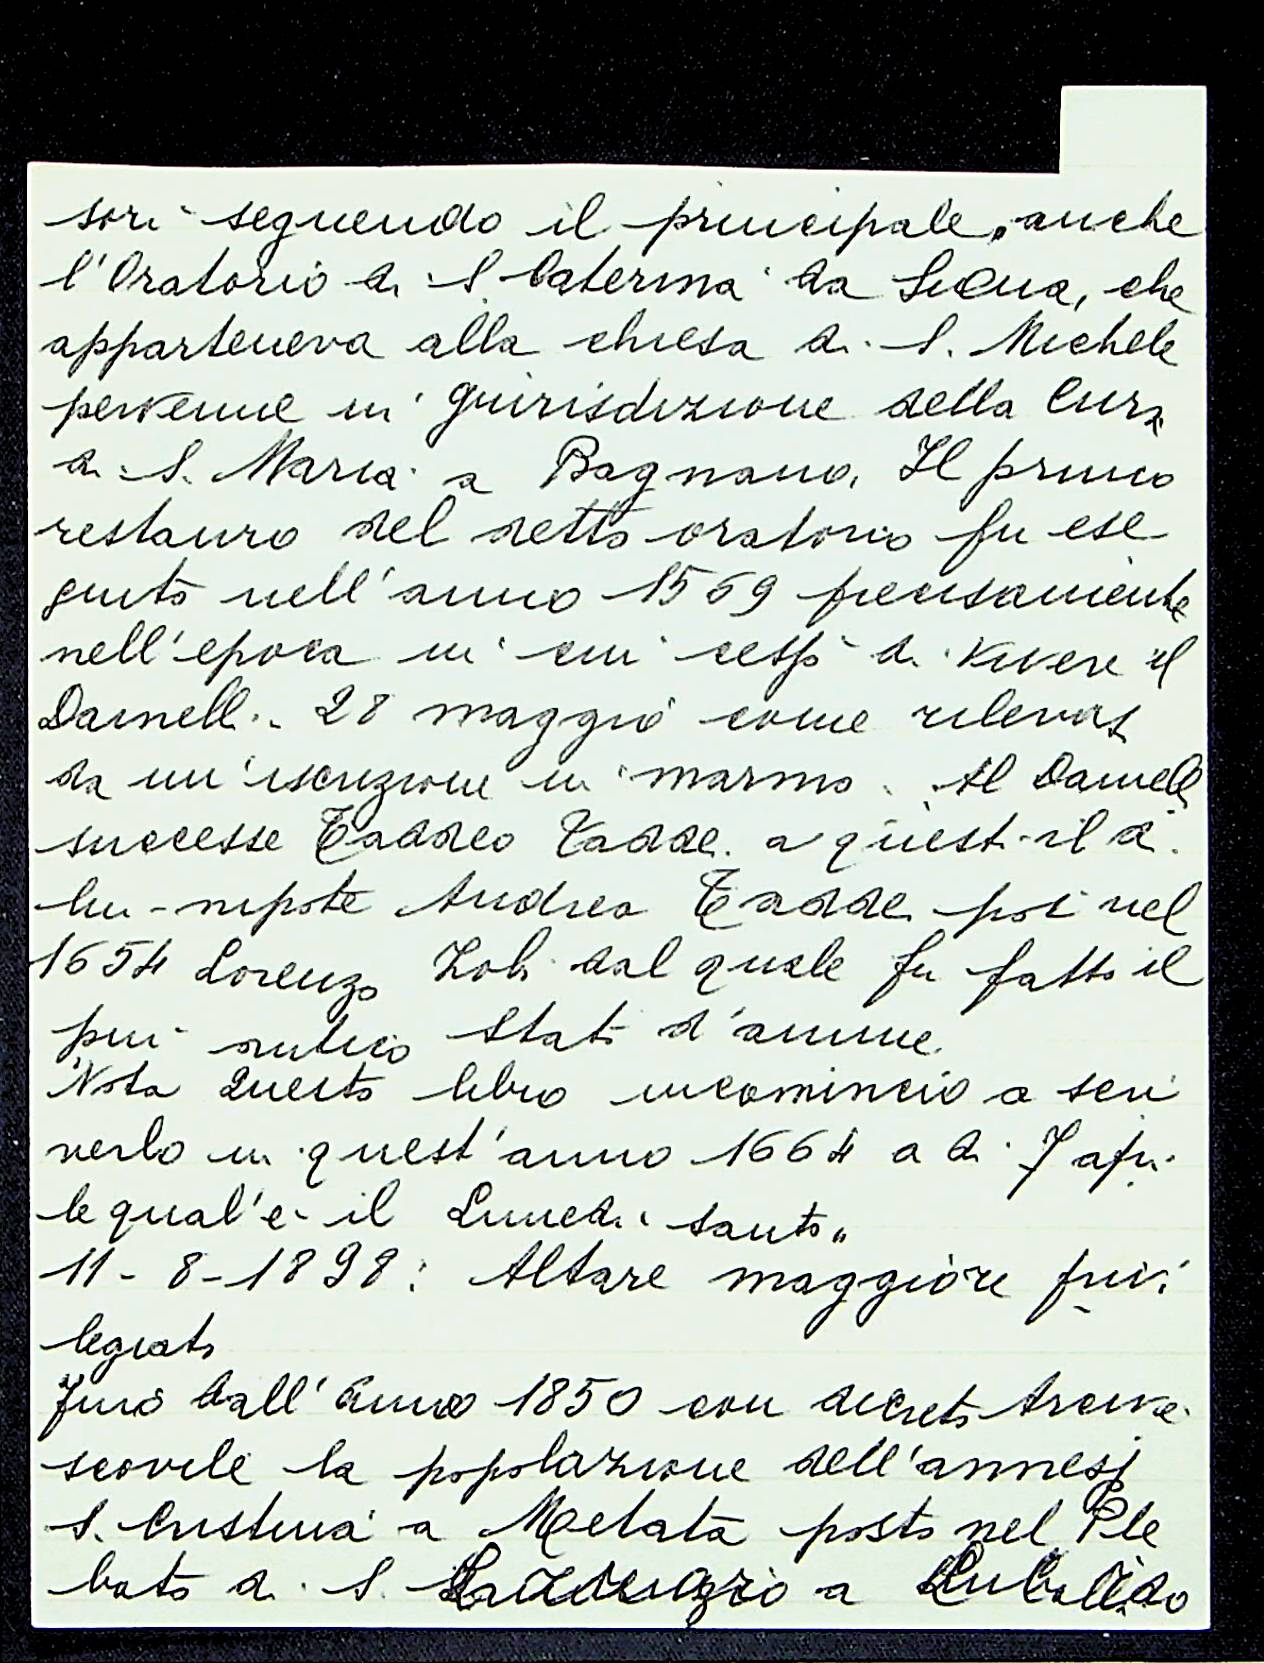 sori seguendo il principale, anche
l'Oratorio di S. Caterina da Siena, che
apparteneva alla chiesa di S. Michele
pervenne in giurisdizione della Cura
di S. Maria a Bagnano. Il primo
restauro del detto oratorio fu ese
guito nell'anno 1569 precisamente
nell'epoca in cui cessò di vivere il
Dainelli 28 maggio come rilevasi
da un'iscrizione in marmo. Al Dainelli
successe Taddeo Taddei a questi il di
lui nipote Andrea Taddei poi nel
1654 Lorenzo Zobi dal quale fu fatto il
più antico Stato d'anime.
Nota Questo libro incomincio a scri
verlo in quest'anno 1664 a di 7 apri
le qual'è il Lunedì santo"
11-8-1898: Altare maggiore privi
legiato
Fino dall'anno 1850 con decreto Arcive
scovile la popolazione dell'annesso
S. Cristina a Metata posto nel Pie
bato di S. a